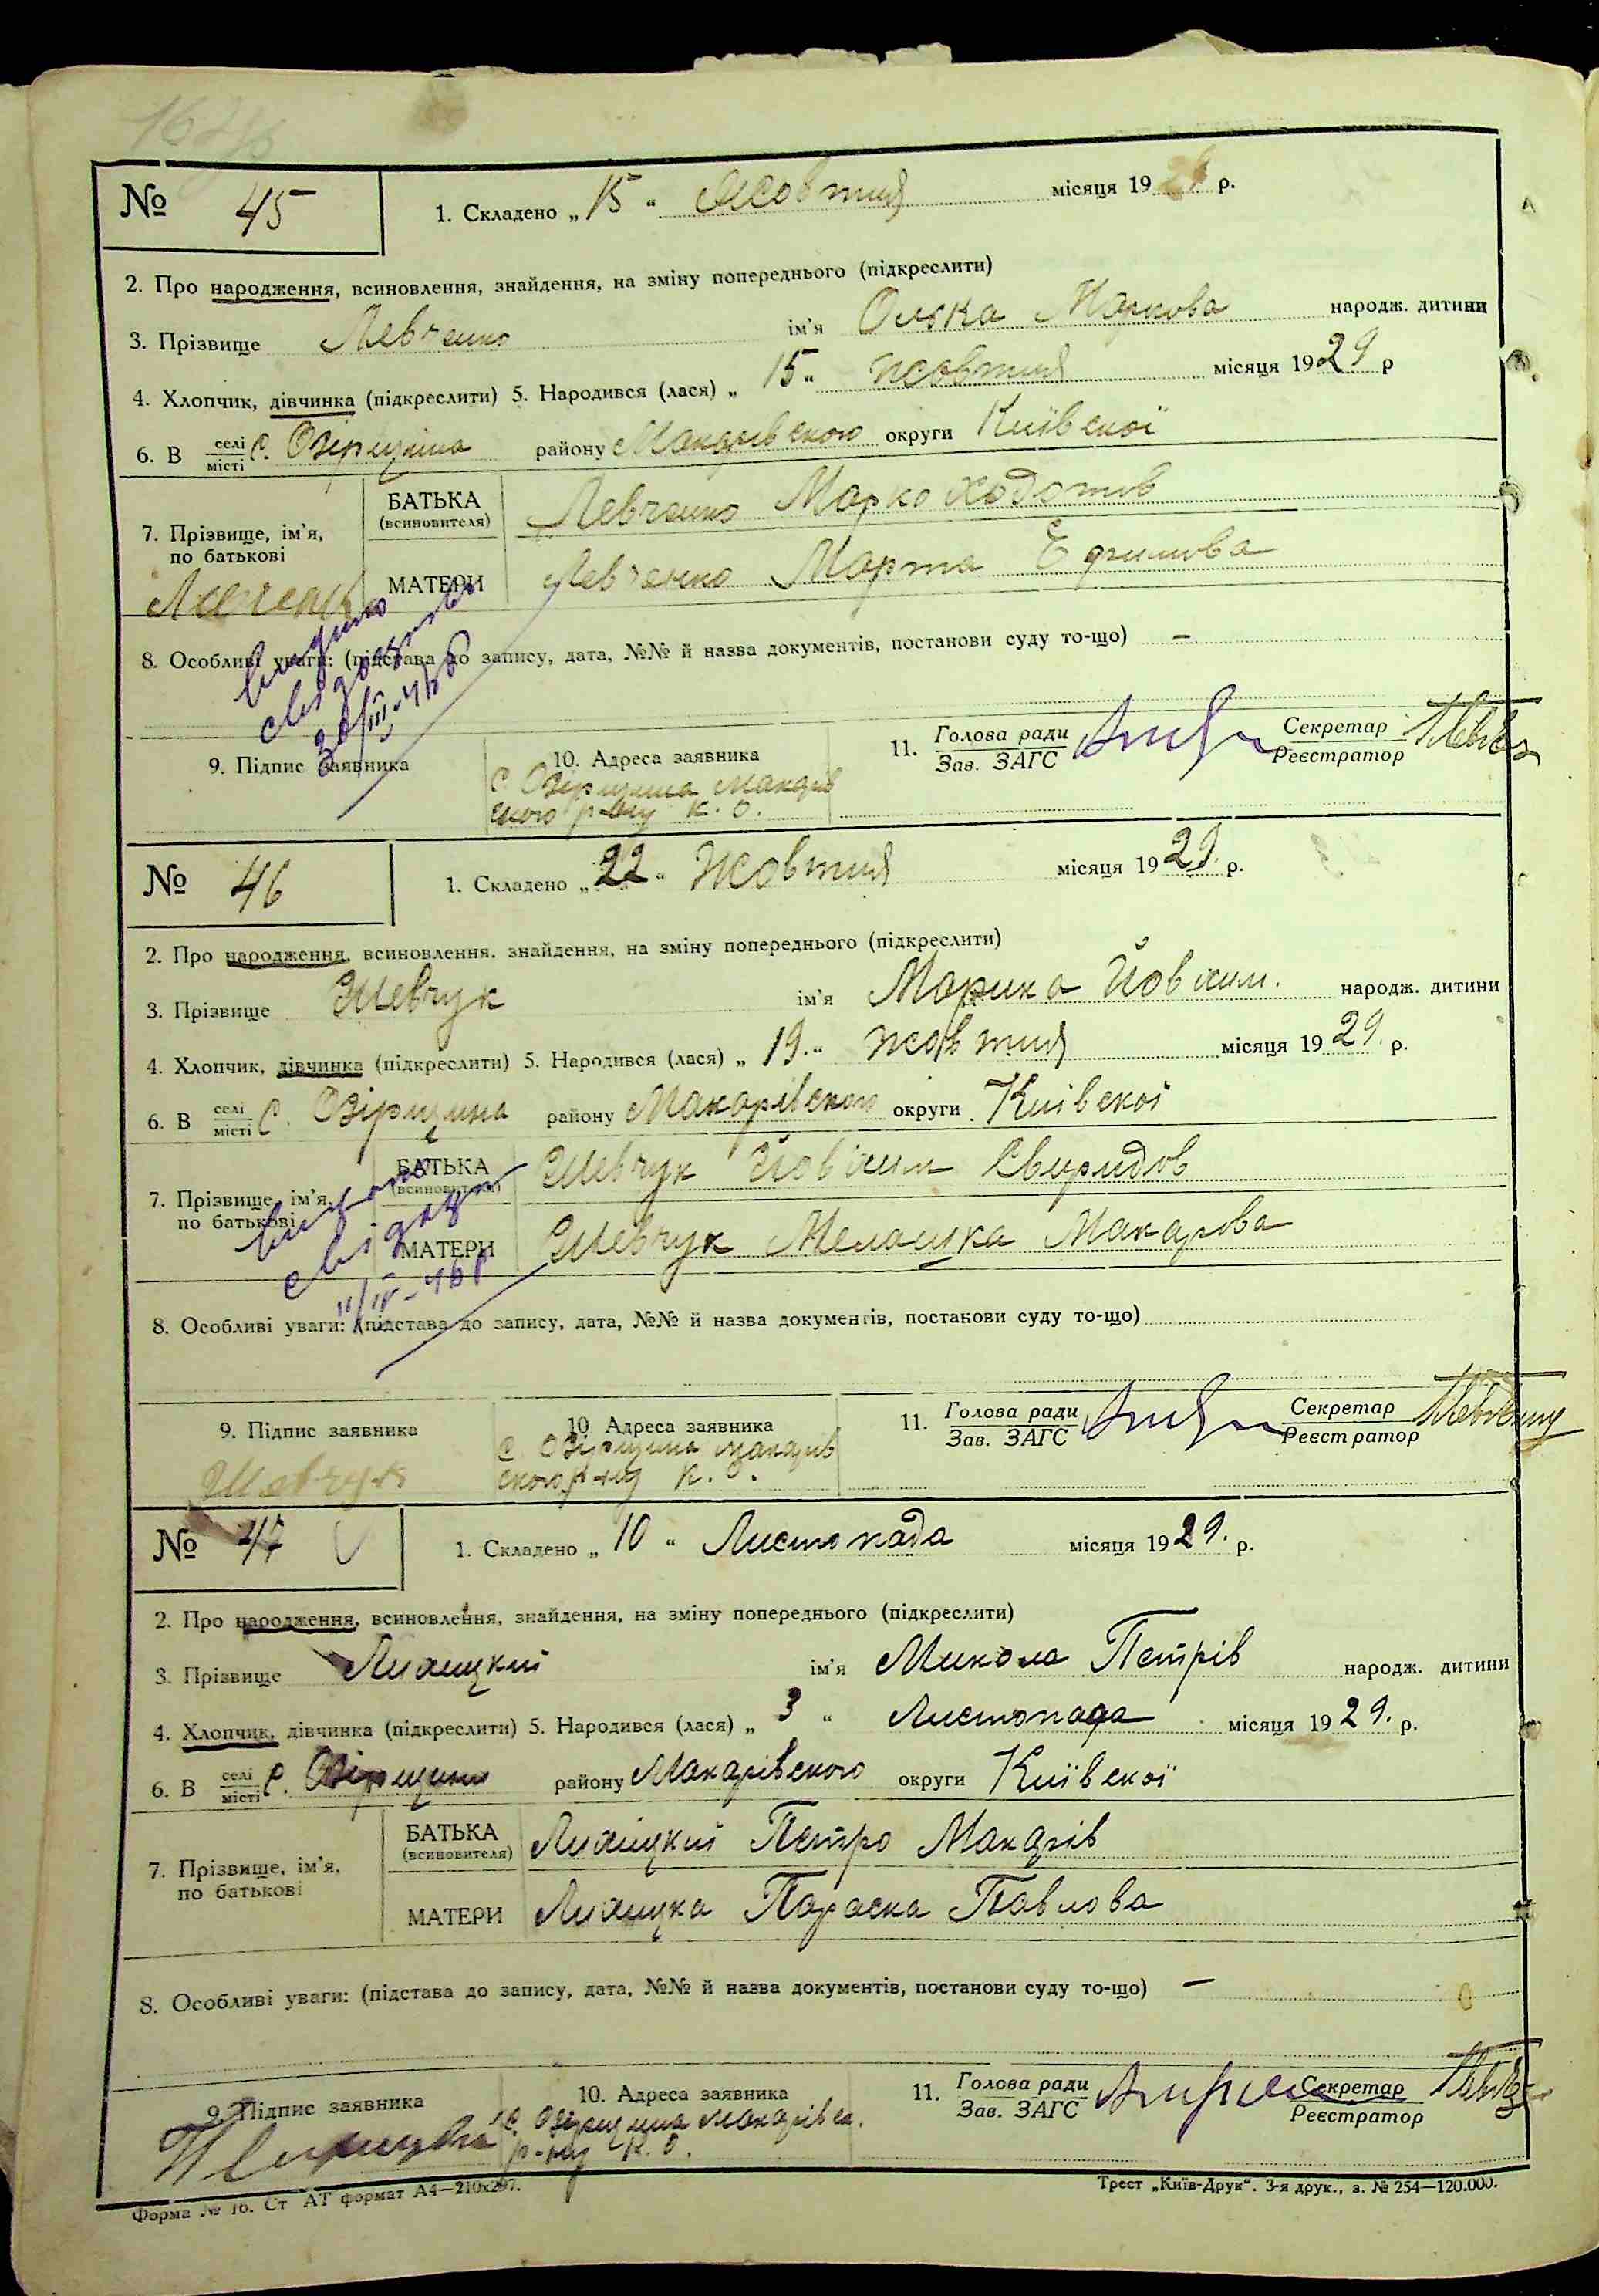 № 45
1. Складено „ 15 “ Жовтня місяця 1929 р.
2. Про народження, всиновлення, знайдення, на зміну попереднього (підкреслити)
3. Прізвище Левченко ім'я Олька Маркова народж. дитини
4. Хлопчик, дівчинка (підкреслити) 5. Народився (лася) „ 15 “ жовтня місяця 1929 р
6. В селі місті с. Озірщина району Макарівского округи Київскої
7. Прізвище, ім'я, по батькові
БАТЬКА (всиновителя) Левченко Марко
МАТЕРИ Левченко Марта Ефимова
8. Особливі уваги: (підстава до запису, дата, №№ й назва документів, постанови суду то-що) —
9. Підпис заявника
10. Адреса заявника
с. Озірщина Макарів
ского р-ну К. О.
11. Голова ради Зав. ЗАГС Секретар Реєстратор
№ 46
1. Складено „ 22 “ Жовтня місяця 1929. р.
2. Про народження, всиновлення, знайдення, на зміну попереднього (підкреслити)
3. Прізвище Шевчук ім'я Марика Йовхим. народж. дитини
4. Хлопчик, дівчинка (підкреслити) 5. Народився (лася) „ 19. “ жовтня місяця 1929. р.
6. В селі місті с. Озірщина району Макарівского округи Київскої
7. Прізвище, ім'я, по батькові
БАТЬКА (всиновителя) Шевчук Йовхим Свиридов
МАТЕРИ Шевчук Мелашка Макарова
8. Особливі уваги: (підстава до запису, дата, №№ й назва документів, постанови суду то-що)
9. Підпис заявника
Шевчук
10. Адреса заявника
с. Озірщина Макарів
ского р-ну К. О.
11. Голова ради Зав. ЗАГС Секретар Реєстратор
№ 47
1. Складено „ 10 “ Листопада місяця 1929. р.
2. Про народження, всиновлення, знайдення, на зміну попереднього (підкреслити)
3. Прізвище ім'я Микола Петрів народж. дитини
4. Хлопчик, дівчинка (підкреслити) 5. Народився (лася) „ 3 “ Листопада місяця 1929. р.
6. В селі місті с. Озірщина району Макарівского округи Київскої
7. Прізвище, ім'я, по батькові
БАТЬКА (всиновителя) Петро Макарів
МАТЕРИ Параска Павлова
8. Особливі уваги: (підстава до запису, дата, №№ й назва документів, постанови суду то-що) —
9. Підпис заявника
10. Адреса заявника
с. Озірщина Макарівск.
р-ну К. О.
11. Голова ради Зав. ЗАГС Секретар Реєстратор
Форма № 16. Ст АТ формат А4—210х297.
Трест „Київ-Друк“. 3-я друк., з. № 254—120.000.